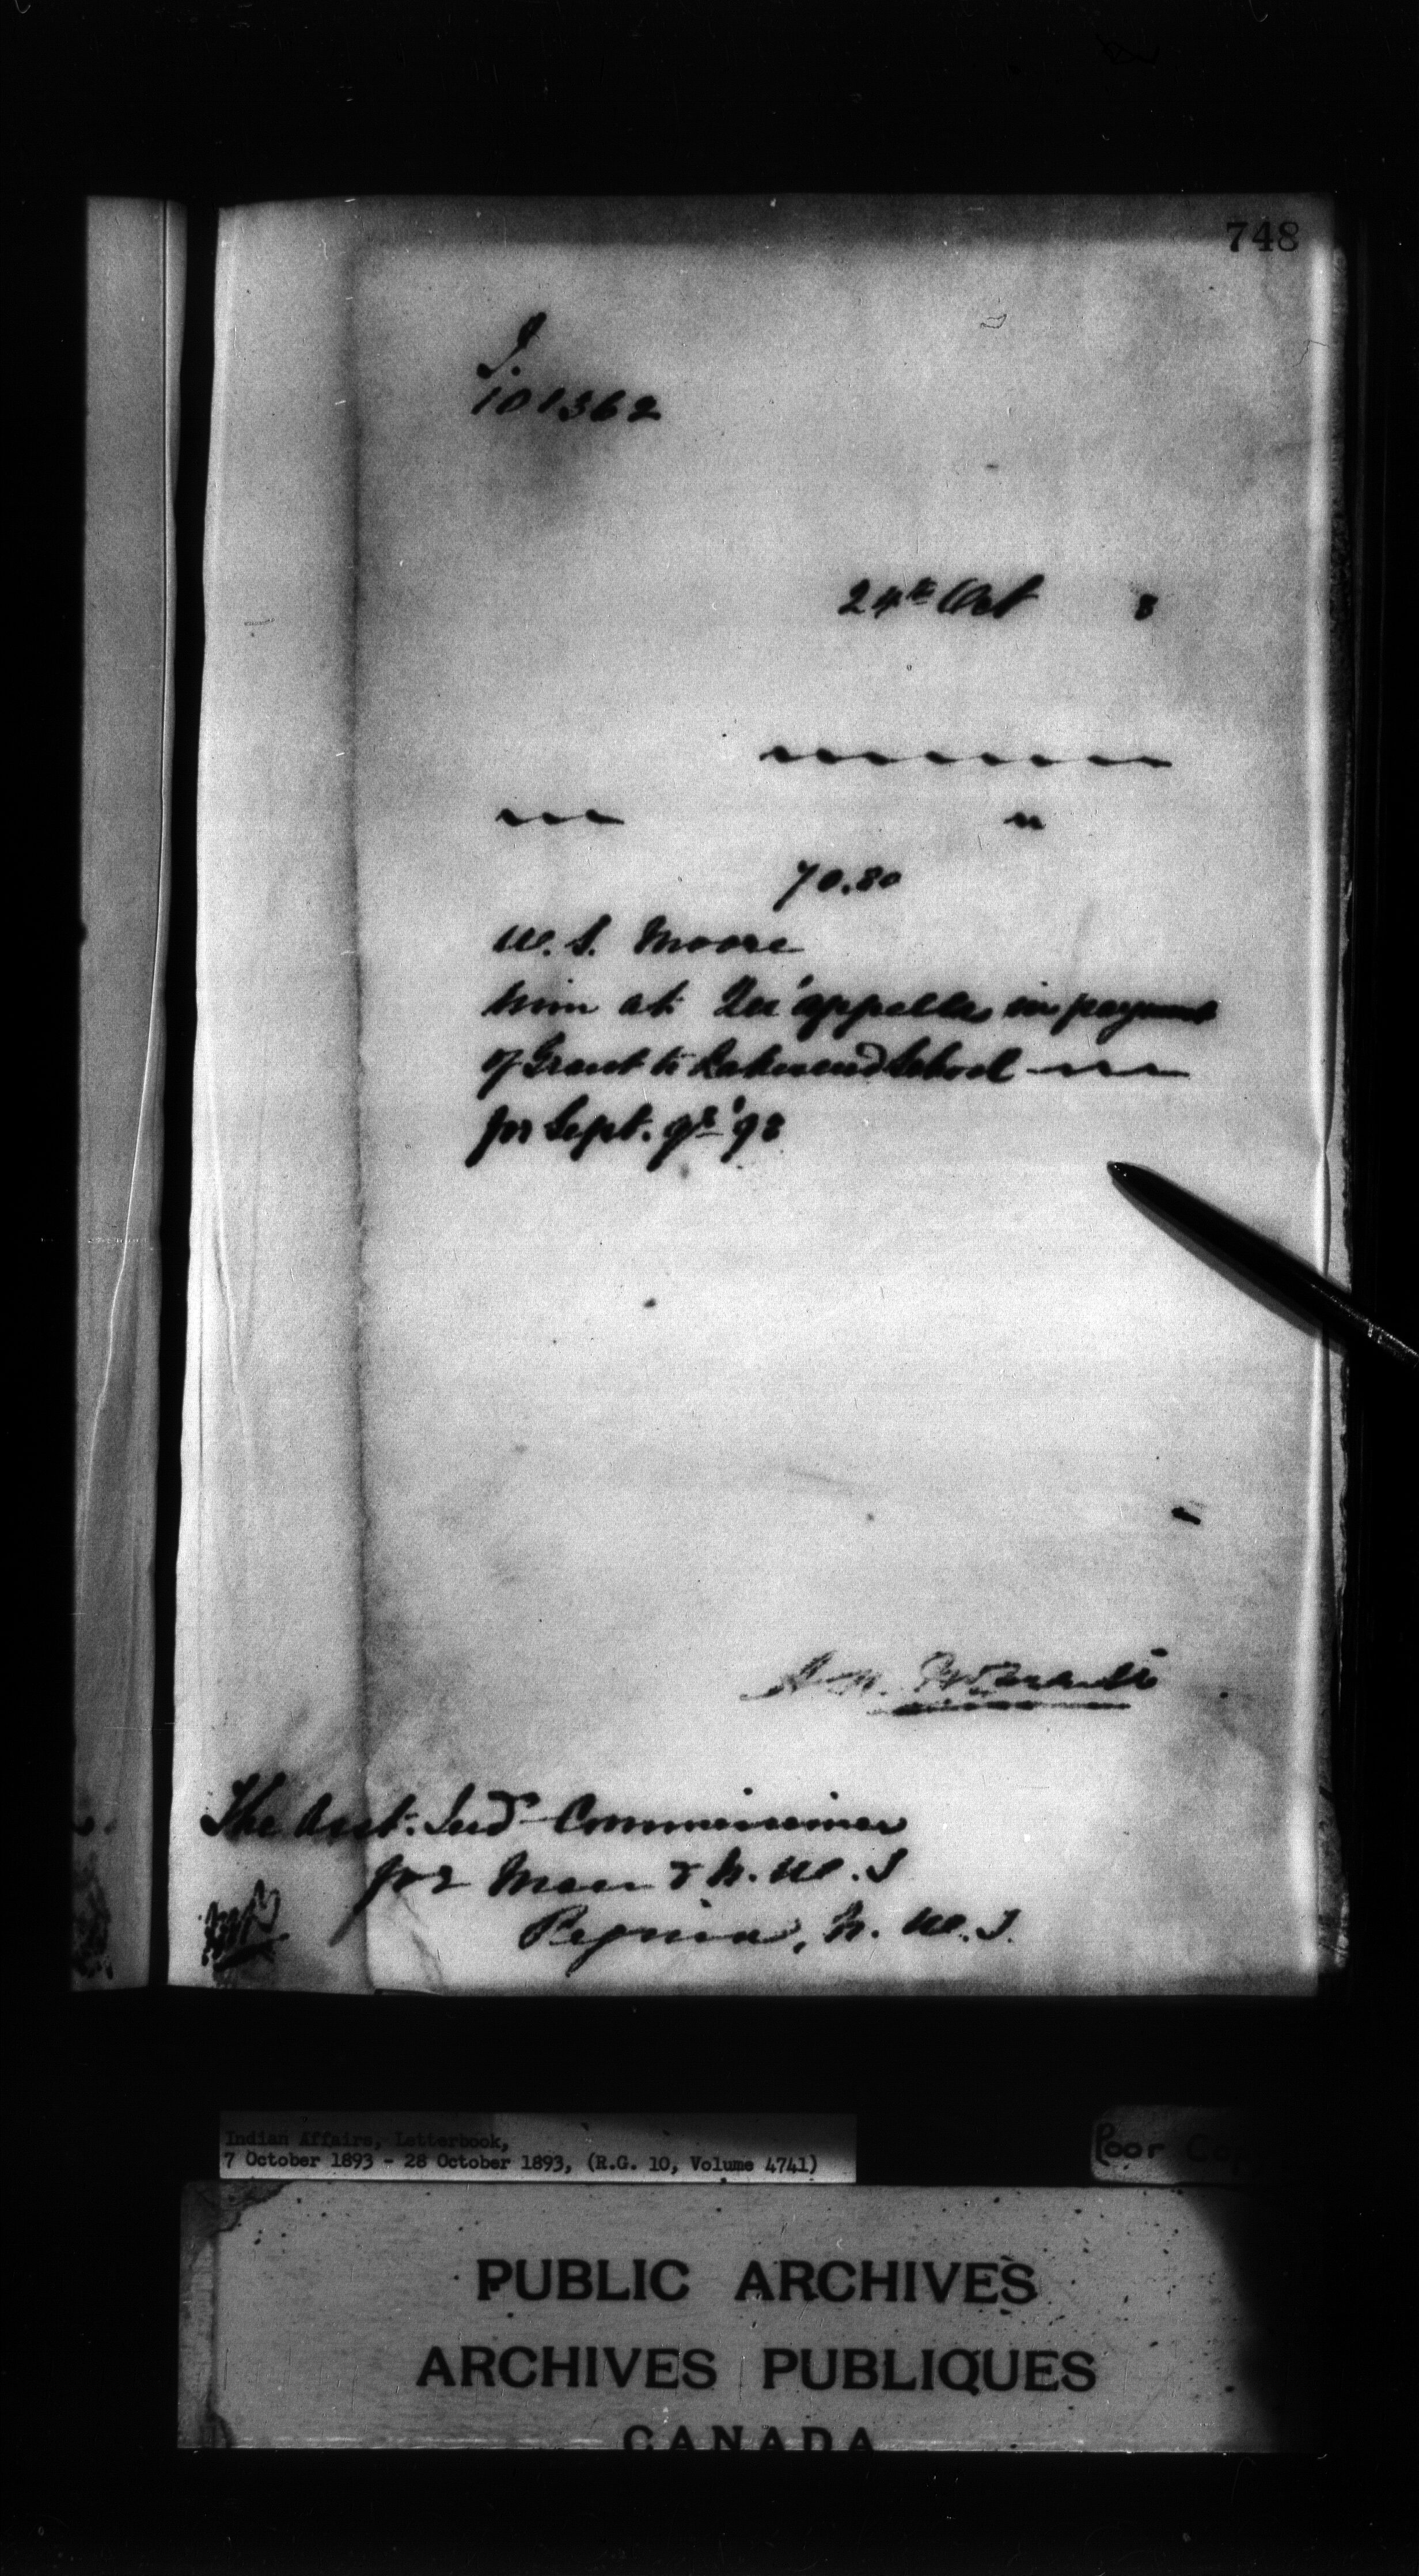 748
101362
24th Oct 3
70.80
W. S. Moore
him at Qu'appelle in payment
of Grant to Lakesend School
for Sept. qr '93
The Asst. Ind Commissioner
for Man & N. W. T
Regina, N. W. T.
Indian Affairs, Letterbook,
7 October 1893 - 28 October 1893, (R.G. 10, Volume 4741)
Poor Cop
PUBLIC ARCHIVES
ARCHIVES PUBLIQUES
CANADA